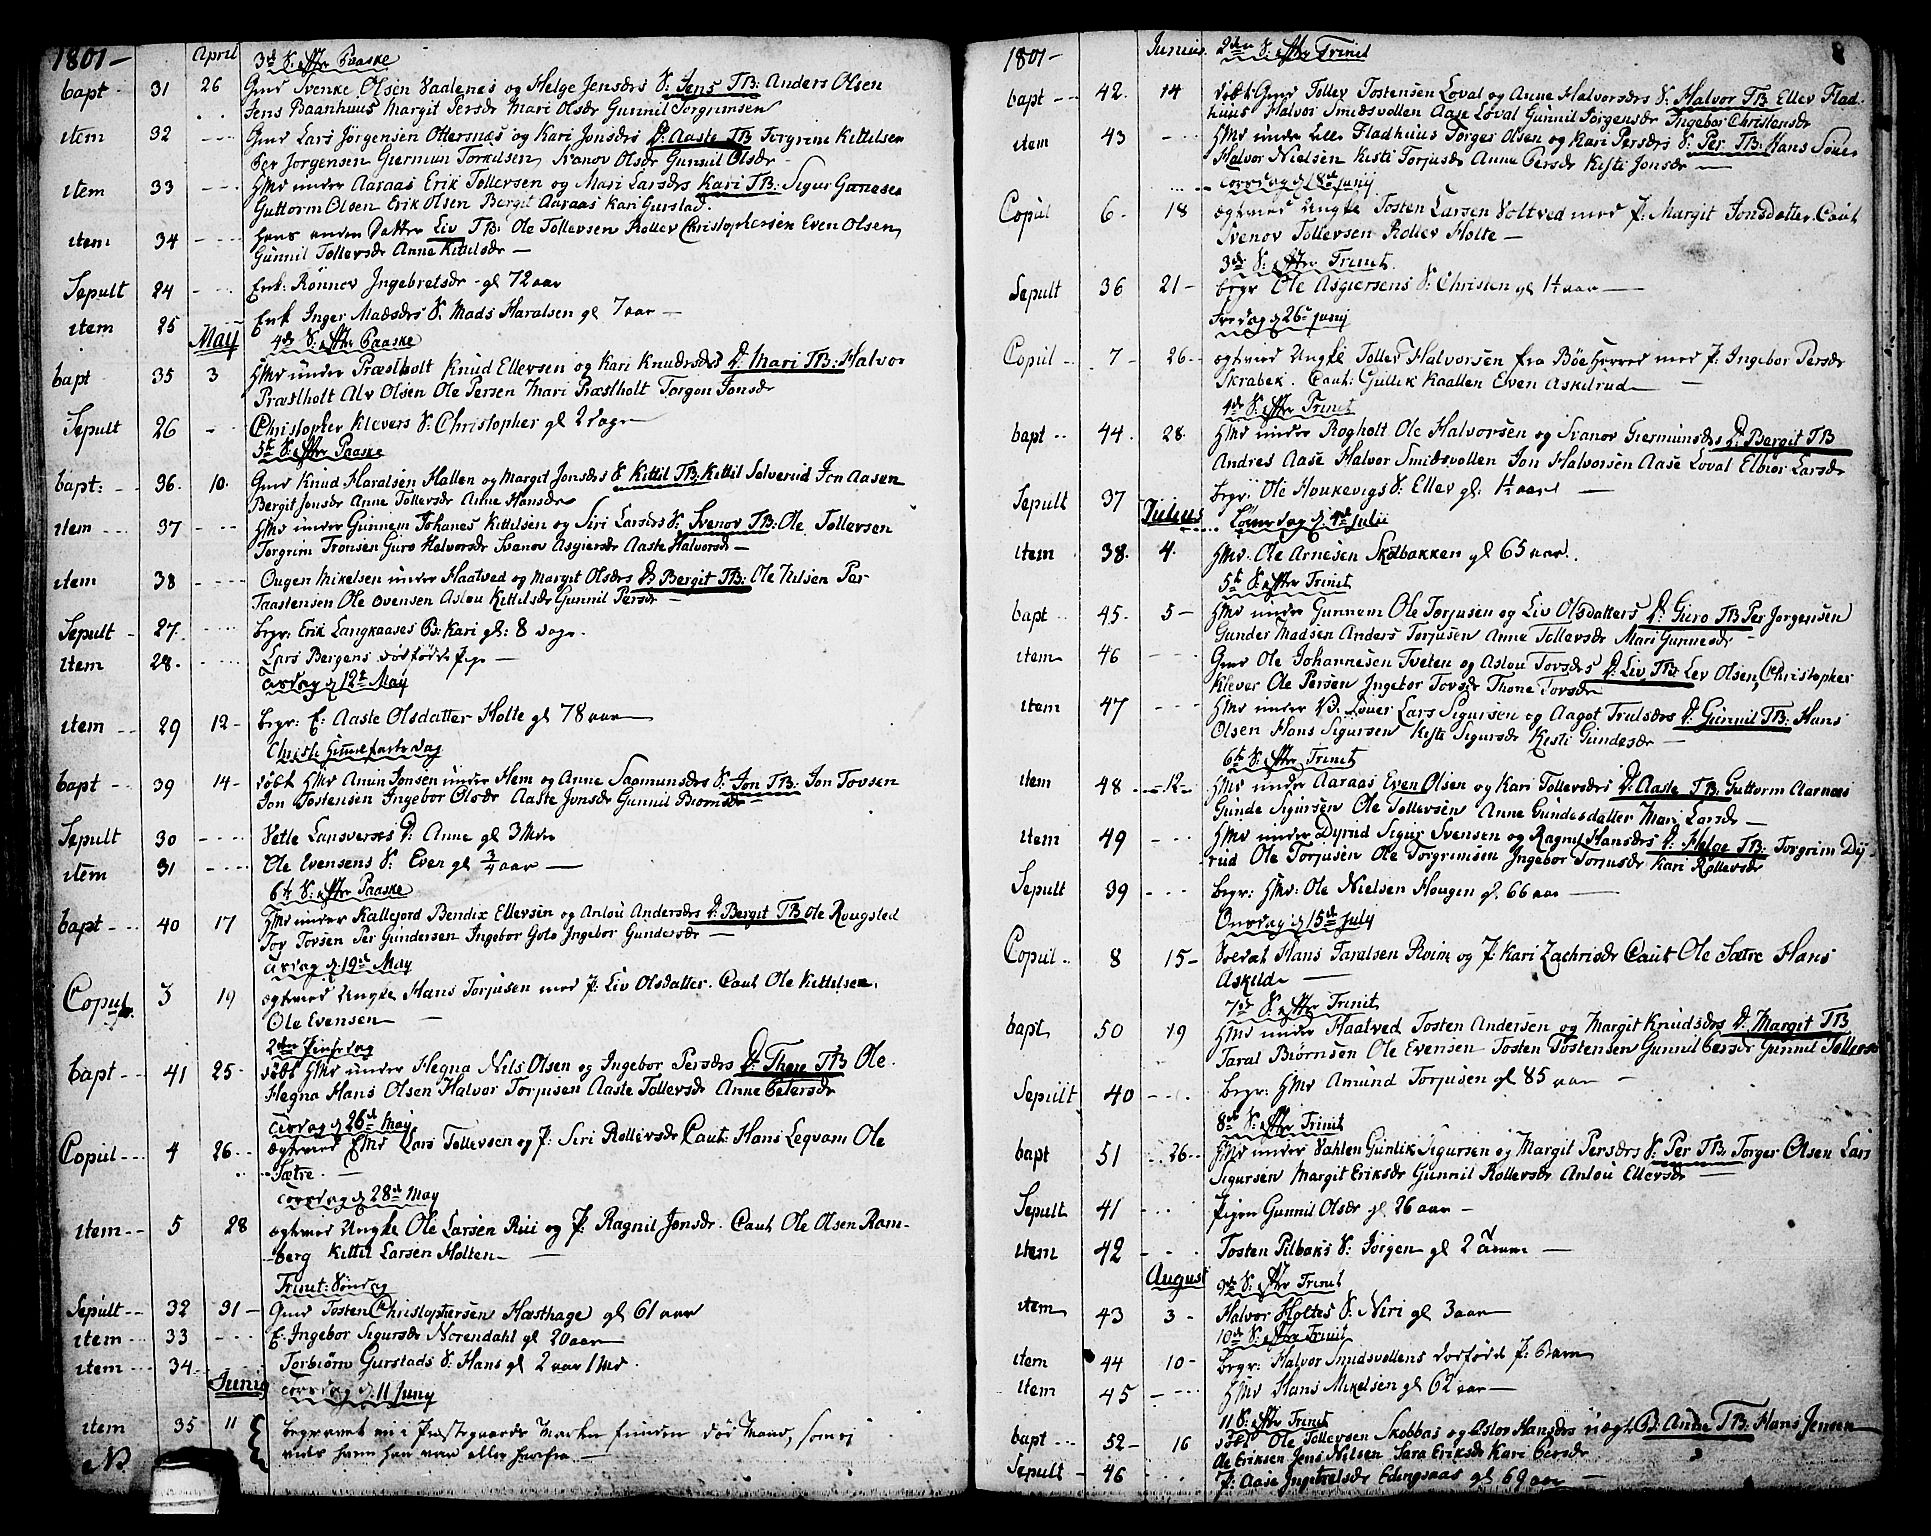 1801 - April 3d S: efter Paaske
bapt 31 26 Gmd Svenke Olsen Vaalenes og Helge Jensdrs S: Jens TB: Anders Olsen
Jens Baanhuus Margit Persdr Mari Olsdr Gunnil Torgrimsen
item 32 Gmd Lars Jørgensen Otternæs og Kari Jonsdrs D: Aaste TB Tergrine Kittilsen
Per Jorgensen Giermun Torkilsen Svanov Olsdr Gunnil Olsdr -
item 33 Hmd under Aaraas Erik Tollevsen og Mari Larsdrs Kari TB: Sigur Gunesen
Guttorm Olsen Erik Olsen Bergit Aaraas Kari Gurstad.
item 34 hans anden Datter Liv TB: Ole Tollevsen Rollev Christophersen Even Olsen,
Gunnil Tollevsdr Anne Kittilsdr -
Sepult 24 Enk: Rønnov Ingebretsdr - gl 72 aar
item 25 Enk Inger Madsdrs S. Mads Haralsen gl 7 aar -
May 4de S: efter Paaske
bapt 35 3 Hmd under Præstholt Knud Ellevsen og Kari Knudsdrs D: Mari TB: Halvor
Præstholt Alv Olsen Ole Persen Mari Præstholt Torgon Jonsdr
Sepult 26 - Christopher Klevers S: Christopher gl 2 dage
5te S: efter Paaske
bapt: 36. 10. Gmd Knud Haralsen Hallen og Margit Jonsdrs S Kittil TB: Kittil Solverud Jon Aasen
Bergit Jonsdr Anne Tollevsdr Anne Hansdr
item 37 Hmd under Gunnem Johanes Kittilsen og Siri Larsdrs S: Svenov TB: Ole Tollevsen
Torgrim Tronsen Guro Halvorsdr Svanov Asgiersdr Aaste Halvorsd -
item 38 Ougen Mikelsen under Haatved og Margit Olsdrs D Bergit TB: Ole Nilsen Per
Taastensen Ole Evensen Aslou Kittilsdr Gunnil Persdr -
Sepult 27. begr: Erik Langkaases B: Kari gl: 8 dage.
item 28. Lars Bergens dødfødte Pige -
Tirsdag d 12t May
item 29 12 - begr: E: Aaste Olsdatter Holte gl 78 aar
Christi Himmelfarts dag
bapt 39 14 - døbt Hmd Anun Jonsen under Hem og Anne Sagmunsdrs S: Jon TB: Jon Tovsen
Jon Tostensen Ingebor Olsdr Aaste Jonsdr Gunnil Biornsdr
Sepult 30 Vetle Lansverses D: Anne gl 3 Mdr
item 31 Ole Evensens S: Even gl 3/4 aar -
6te S: efter Paaske
bapt 40 17 Hmd under Kallejord Bendix Ellevsen og Anlou Andersdrs D: Bergit TB Ole Rougsted
Tov Tovsen Per Gundersen Ingebor Goto Ingebor Gundersdr -
Tirsdag d. 19d May
Copul. 3 19 egteviet Ungkl Hans Torjusen med P: Liv Olsdatter. Caut Ole Kittilsen,
Ole Evensen -
2den Pintzdag
bapt 41 25 - døbt Hmd under Hegna Nils Olsen og Ingebor Persdrs D: Thone TB Ole
Hegna Hans Olsen Halvor Torjusen Aaste Tollevsdr Anne Petersdr
Tirsdag d 26d May
Copul 4 26 egteviet Emd Lars Tollevsen og P: Siri Rollevsdr Caut: Hans Leqvam Ole
Sætre -
Torsdag d 28d May
item 5 28 egteviet Ungkl Ole Larsen Riis og P: Ragnil Jonsdr. Caut Ole Olsen Ram-
berg Kittil Larsen Holten -
Trinit: Søndag
Sepult 32 31 - Gmd Tosten Christophersen Hæsthage gl 61 aar
item 33 E. Ingebor Sigursdr Norendahl gl 20 aar
item 34 Torbiørn Gurstads S. Hans gl 2 aar 1 Md.
Junij Torsdag d. 11 Juny
item 35 11 begravet en i Præstegaards Marken funden død Mand, som ej
NB vides hvem han var eller hvorfra -
1801 - Junius 2den S: efter Trinit 8
bapt 42. 14 døbt Gmd Tollev Tostensen Loval og Anne Halvorsdrs S. Halvor TB Ellev Flad-
huus Halvor Smidsvollen Aase Loval Gunnil Torgensdr Ingebor Christensdr
item 43 Hmd under lille Fladhuus Torger Olsen og Kari Persdrs S: Per TB: Hans Souer
Halvor Nielsen Kisti Torjusdr Anne Persdr Kisti Jonsdr -
Torsdag d 18d Junij
Copul 6 - 18 egteviet Ungkl Tosten Larsen Voltved med P: Margit Jonsdatter. Caut
Svenov Tollevsen Rollev Holte -
3de S: efter Trinit.
Sepult 36 21 - begr Ole Asgiersens S: Christen gl 1½ aar -
Fredag d 26d Junij
Copul 7 - 26 - egteviet Ungkl Tollev Halvorsen fra Bøe Herred med P: Ingebor Persdr
Skrabek. Caut: Gullik Kaallen Even Askilrud -
4de S: efter Trinit
bapt 44. 28. Hmd under Rogholt Ole Halvorsen og Svanov Giermunsdrs D: Bergit TB
Andres Aase Halvor Smidsvollen Jon Halvorsen Aase Loval Elbior Larsdr
Sepult 37 begr: Ole Houkevigs S: Ellev gl: ½ aar -
Julius Løverdag d. 4d Julii
item 38. 4. Hmd. Ole Arnesen Skolbakken gl 65 aar.
5te S: efter Trinit
bapt 45. 5 - Hmd under Gunnem Ole Torjusen og Liv Olsdatters D: Guro TB Per Jorgensen
Gunder Madsen Anders Torjusen Anne Tollevsdr Mari Gunnesdr
item 46 Gmd Ole Johannesen Tveten og Aslou Tovsdrs D: Liv TB: Lev Olsen, Christopher
Klever Ole Persen Ingebor Tovsdr Thone Torsdr
item 47 Hmd under V. Louer Lars Sigursen og Aagot Trulsdrs D: Gunnil TB: Hans
Olsen Hans Sigursen Kisti Sigursdr Kisti Gundesdr -
6te S: efter Trinit
item 48 - 12 - Hmd under Aaraas Even Olsen og Kari Tollevsdrs D: Aaste TB: Guttorm Aarnæs
Gunde Sigursen Ole Tollevsen Anne Gundesdatter Mari Larsdr -
item 49 Hmd under Dyrud Sigur Svensen og Ragnil Hansdrs D: Helge TB: Torgrim Dy-
rud Ole Torjusen Ole Torgrimsen Ingebor Torjusdr Kari Rollevsdr
Sepult 39 begr: Hmd: Ole Nielsen Hougen gl. 66 aar -
Onsdag d 15d July
Copul 8 15 - Soldat Hans Taralsen Roim og P: Kari Zachrisdr Caut Ole Sætre Hans
Askilde -
7de S: efter Trinit
bapt 50 19 Hmd under Haatved Tosten Andersen og Margit Knudsdrs D: Margit TB
Taral Biørnsen Ole Evensen Tosten Tostensen Gunnil Persdr Gunnil Tollevs
Sepult 40 begr: Hmd Amund Torjusen gl 85 aar -
8de S: efter Trinit
bapt 51 26 - Hmd under Vahlen Gunlik Sigursen og Margit Persdrs S: Per TB: Torger Olsen Lars
Sigursen Margit Eriksdr Gunnil Rollevsdr Anlou Ellevsdr -
Sepult 41 Pigen Gunnil Olsdr gl 26 aar -
item 42 Tosten Pilbaks S: Jorgen gl 2 Aar -
August 9de S: efter Trinit
item 43 3 - Halvor Holtes S: Niri gl 3 aar -
10de S: efter Trinit
item 44 10 - begr: Halvor Smidsvollens dødfød P: Barn
item 45 Hmd Hans Mikelsen gl 62 aar -
11 S: efter Trinit
bapt 52 - 16 døbt Ole Tollevsen Skobbas og Aslov Hansdrs uægt B. Anne TB. Hans Jensen
Ole Eriksen Jens Nielsen Sara Eriksdr Kari Persdr
Sepult - 46 P: Aase Ingebretsdr Edingsaas gl 69 aar -